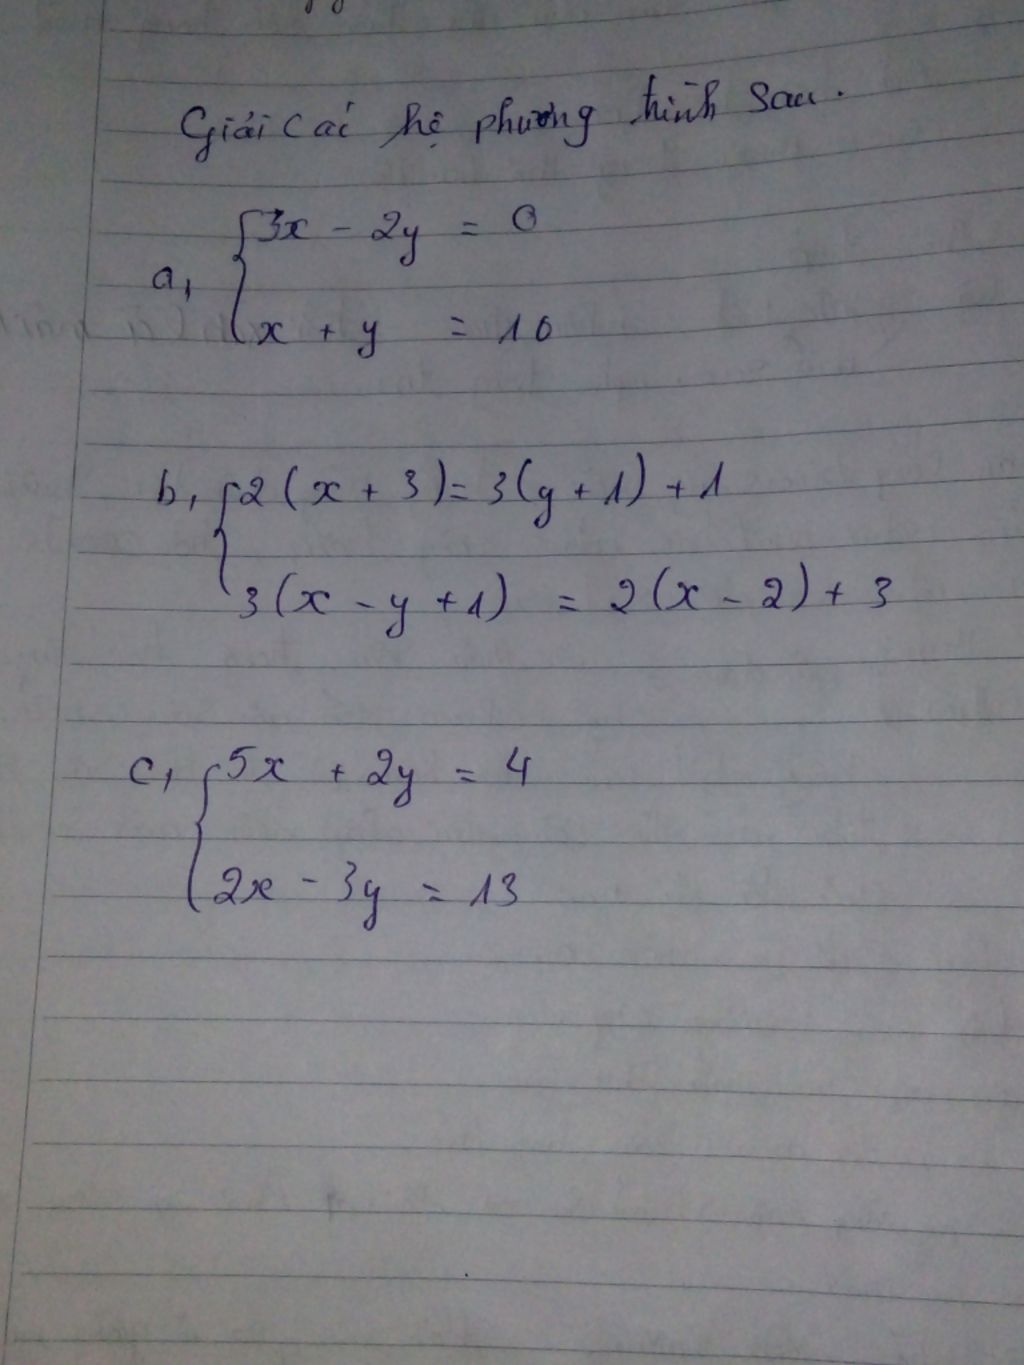 Giải các hệ phương trình sau.
a, { 3x - 2y = 0
x + y = 10
b, { 2(x + 3) = 3(y + 1) + 1
3(x - y + 1) = 2(x - 2) + 3
c, { 5x + 2y = 4
2x - 3y = 13